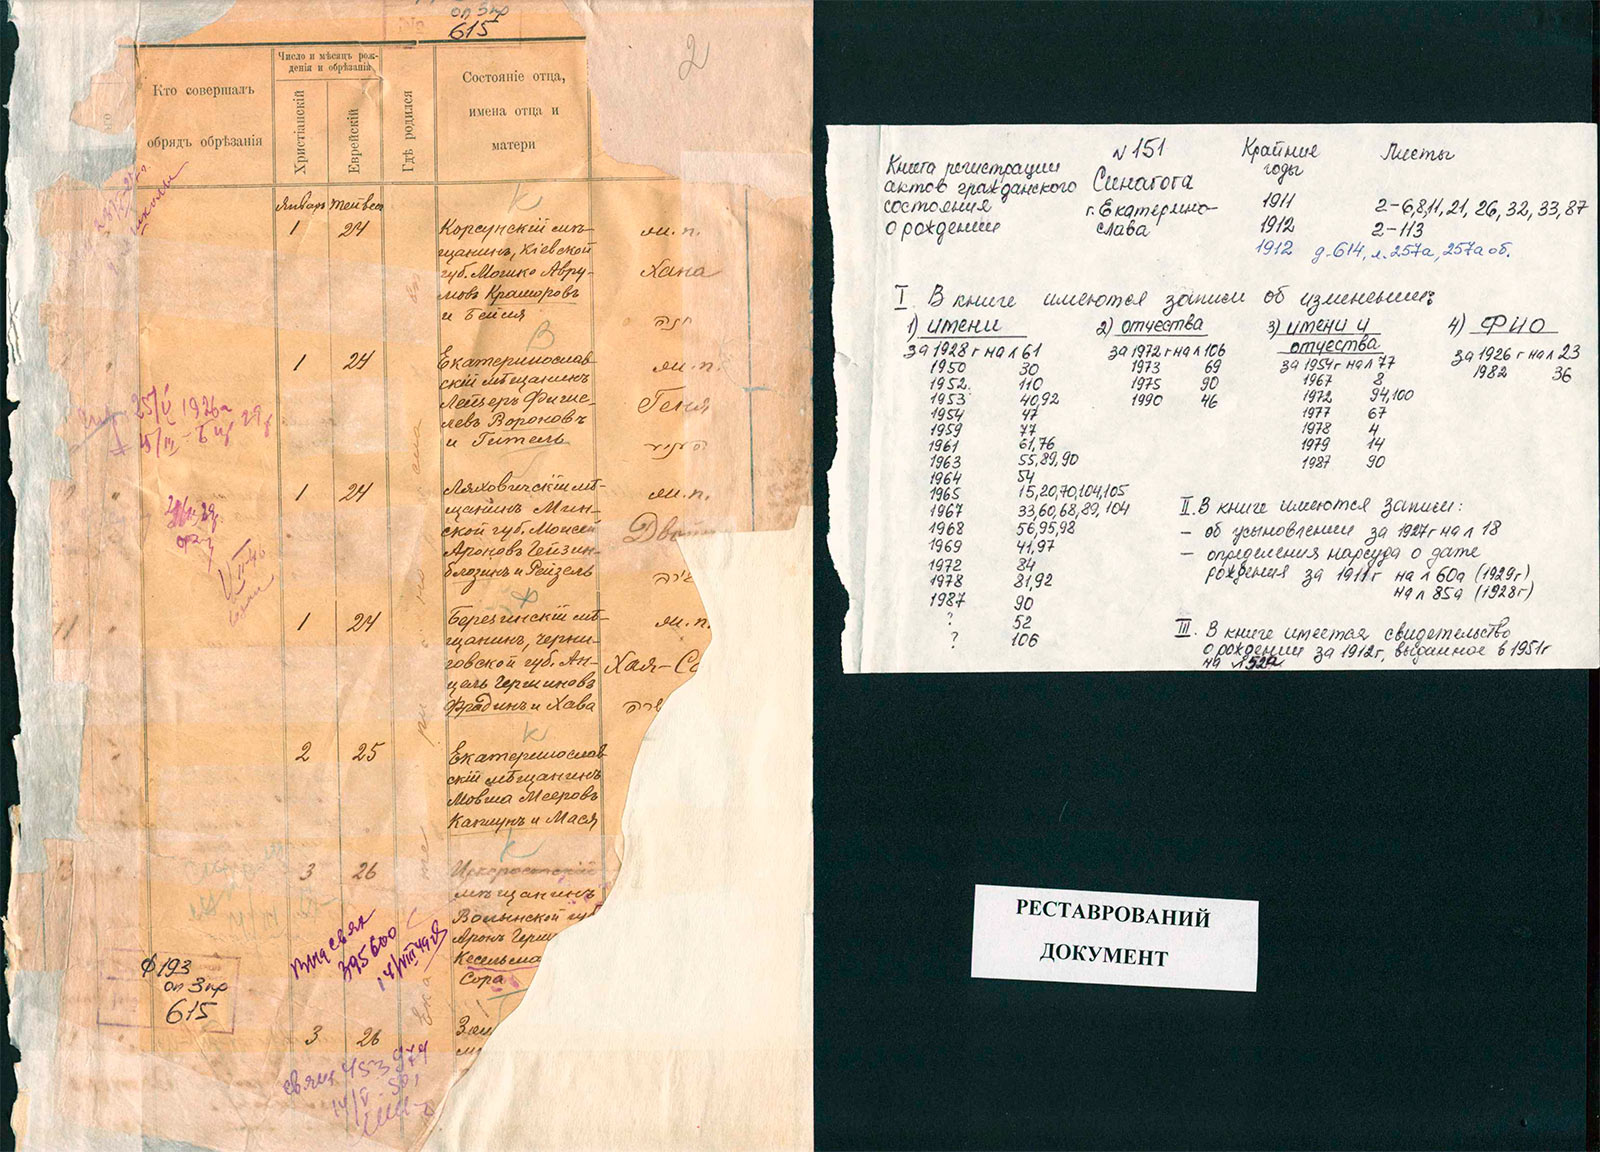 оп 3пр
615
2
Кто совершалъ
обрядъ обрѣзанія
Число и мѣсяцъ рож-
денія и обрѣзанія
Христіанскій
Еврейскій
Гдѣ родился
Состояніе отца,
имена отца и
матери
Январь Тейвеса
К
1 24
Корсунскій мѣ-
щанинъ, Кіевской
губ. Мошко Авру-
мовъ Краморовъ
и Бейля
м.п.
Хана
חנה
В
1 24
Екатеринослав
скій мѣщанинъ
Лейзеръ Фише-
левъ Вороновъ
и Гитель
м.п.
Геня
25/V 1926г
1 24
Ляховичскій мѣ-
щанинъ Мин-
ской губ. Моисей
Ароновъ Гейзин-
блозинъ и Рейзель
м.п.
Ф
1 24
Березинскій мѣ-
щанинъ, Черни-
говской губ. Ан-
цель Гершиновъ
Фрадинъ и Хава
м.п.
Хая-Со
К
2 25
Екатеринослав
скій мѣщанинъ
Мовша Мееровъ
Каплунъ и Мася
К
3 26
мѣщанинъ
Волынской губ
Аронъ Герш
Кесельма
Сора
395600
14/VIII 49г
Ф193
оп 3пр
615
3 26
453974
14/V
Книга регистрации
актов гражданского
состояния
о рождении
№151
Синагога
г. Екатерино-
слава
Крайние
годы
1911
1912
1912
Листы
2-6,8,11,21,26,32,33,87
2-113
д-614, л.257а, 257а об.
I. В книге имеются записи об изменении:
1) имени
за 1928 г на л 61
1950 30
1952 110
1953 40,92
1954 47
1959 77
1961 61,76
1963 55,89,90
1964 54
1965 15,20,70,104,105
1967 33,60,68,89,104
1968 56,95,98
1969 41,97
1972 84
1978 81,92
1987 90
? 52
? 106
2) отчества
за 1972 г на л 106
1973 69
1975 90
1990 46
3) имени и
отчества
за 1954г на л 77
1967 8
1972 94,100
1977 67
1978 4
1979 14
1987 90
4) ФИО
за 1926 г на л 23
1982 36
II. В книге имеются записи:
— об усыновлении за 1927г на л 18
— определения нарсуда о дате
рождения за 1911г на л 60а (1929г)
на л 85а (1928г)
III. В книге имеется свидетельство
о рождении за 1912г, выданное в 1951г
на л 52а
РЕСТАВРОВАНИЙ
ДОКУМЕНТ